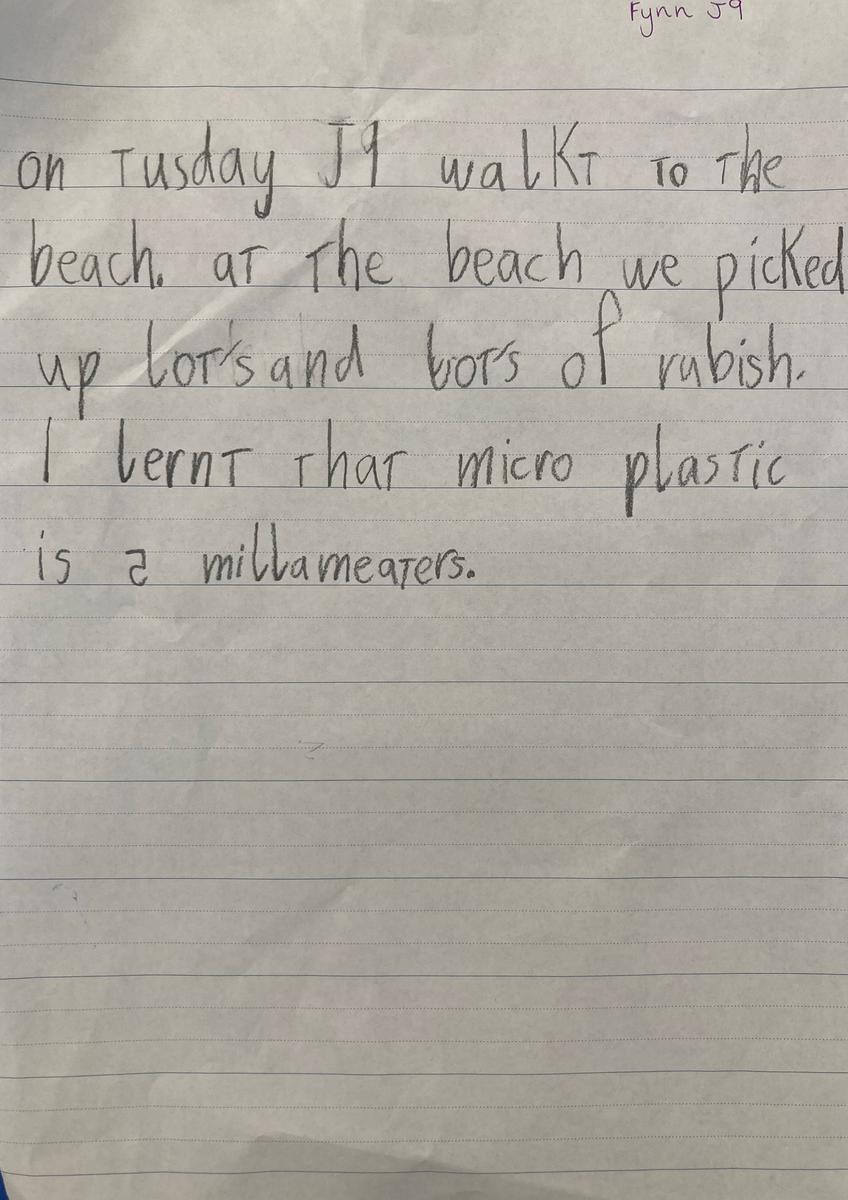 Fynn J9
on Tusday J9 walkt to the
beach. at the beach we picked
up lot's and lot's of rubish.
I lernt that micro plastic
is 2 millameaters.